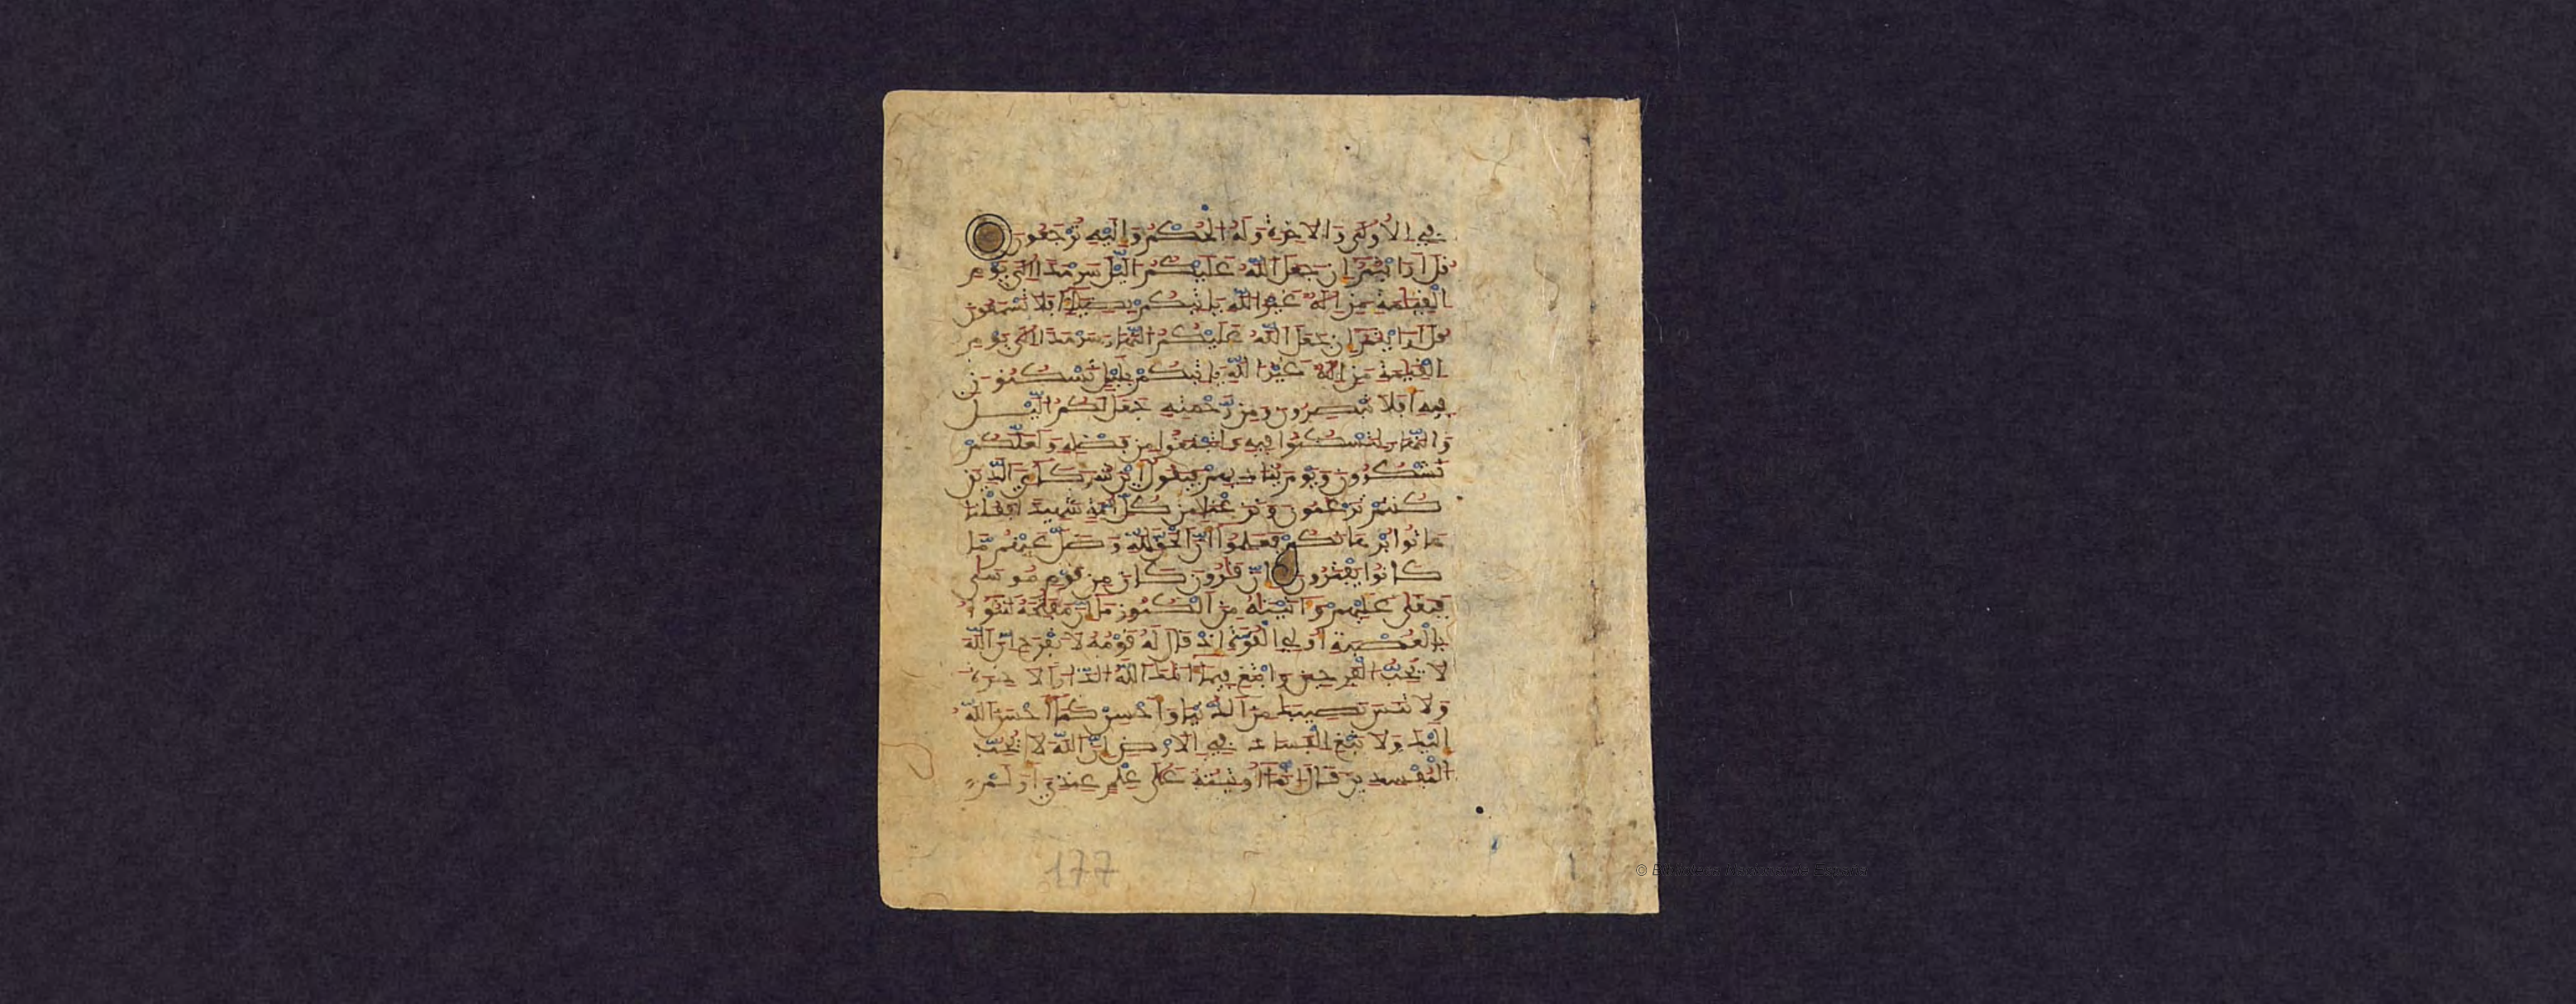 في الاولى والاخرة وله الحكم واليه ترجعون
قل ارايتم ان جعل الله عليكم اليل سرمدا الى يوم
القيمة من اله غير الله ياتيكم بضياء افلا تسمعون
قل ارايتم ان جعل الله عليكم النهار سرمدا الى يوم
القيمة من اله غير الله ياتيكم بليل تسكنون
فيه افلا تبصرون ومن رحمته جعل لكم اليل
والنهار لتسكنوا فيه ولتبتغوا من فضله ولعلكم
تشكرون ويوم يناديهم فيقول اين شركاءي الذين
كنتم تزعمون ونزعنا من كل امة شهيدا فقلنا
هاتوا برهانكم فعلموا ان الحق لله وضل عنهم ما
كانوا يفترون ان قارون كان من قوم موسى
فبغى عليهم واتيناه من الكنوز ما ان مفاتحه لتنوا
بالعصبة اولي القوة اذ قال له قومه لا تفرح ان الله
لا يحب الفرحين وابتغ فيما اتاك الله الدار الاخرة
ولا تنس نصيبك من الدنيا واحسن كما احسن الله
اليك ولا تبغ الفساد في الارض ان الله لا يحب
المفسدين قال انما اوتيته على علم عندي اولم
177
© Biblioteca Nacional de España